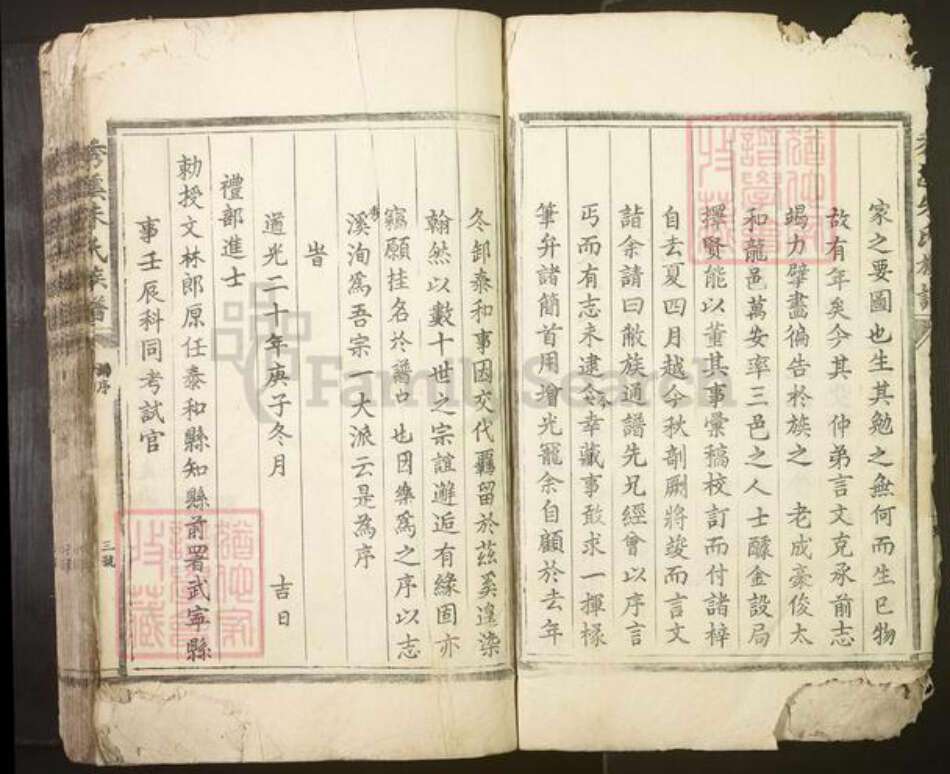 家之要圖也生其勉之無何而生已物
故有年矣今其 仲弟言文克承前志
竭力擘畫徧告於族之 老成豪俊太
和龍邑萬安率三邑之人士醵金設局
擇賢能以董其事彙稿校訂而付諸梓
自去夏四月越今秋剞劂將竣而言文
詣余請曰敝族通譜先兄經會以序言
丐而有志未逮今幸蕆事敢求一揮椽
筆弁諸簡首用增光寵余自顧於去年
冬卸泰和事因交代羈留於茲奚遑染
翰然以數十世之宗誼邂逅有緣固亦
竊願挂名於譜中也因樂為之序以志
秀溪洵為吾宗一大派云是為序
旹
道光二十年庚子冬月 吉日
禮部進士
勅授文林郎原任泰和縣知縣前署武寧縣
事壬辰科同考試官
朱氏族譜
序
三號
FamilySearch